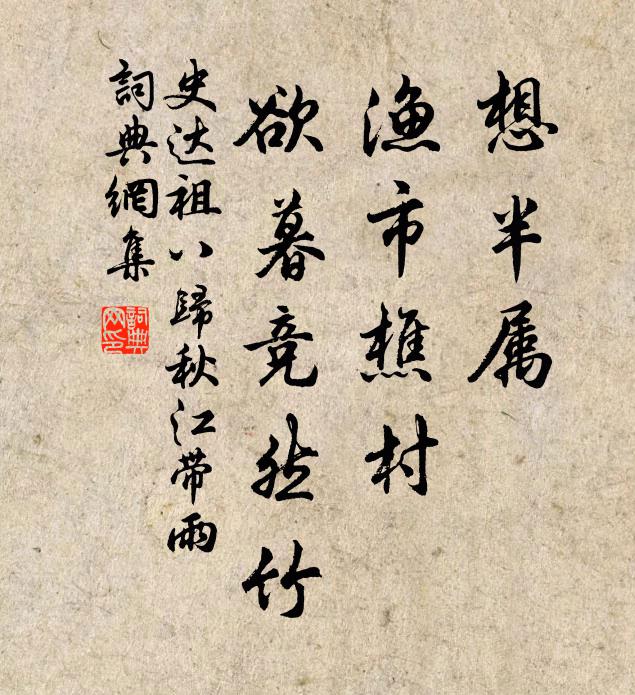 想半属
渔市樵村
欲暮竞然竹
史达祖八歸秋江带雨
詞典網集
詞典网印